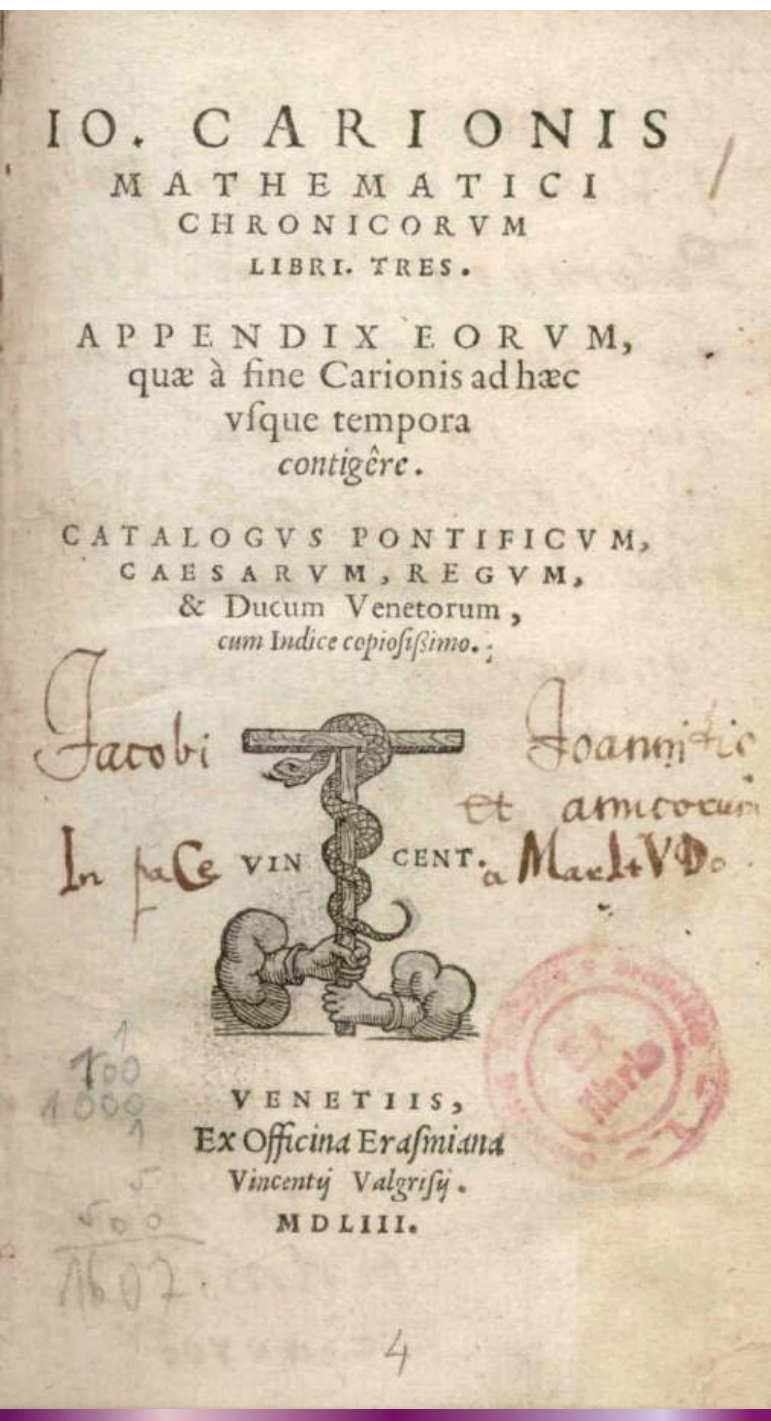 IO. CARIONIS
MATHEMATICI
CHRONICORVM
LIBRI. TRES.
APPENDIX EORVM,
quæ à fine Carionis ad hæc
vſque tempora
contigêre.
CATALOGVS PONTIFICVM,
CAESARVM, REGVM,
& Ducum Venetorum,
cum Indice copioſiſsimo.
Jacobi
et amicorum
In paCe
VIN CENT.
a
VENETIIS,
Ex Officina Eraſmiana
Vincentij Valgriſij.
MDLIII.
1
100
1000
1
5
500
1607
4